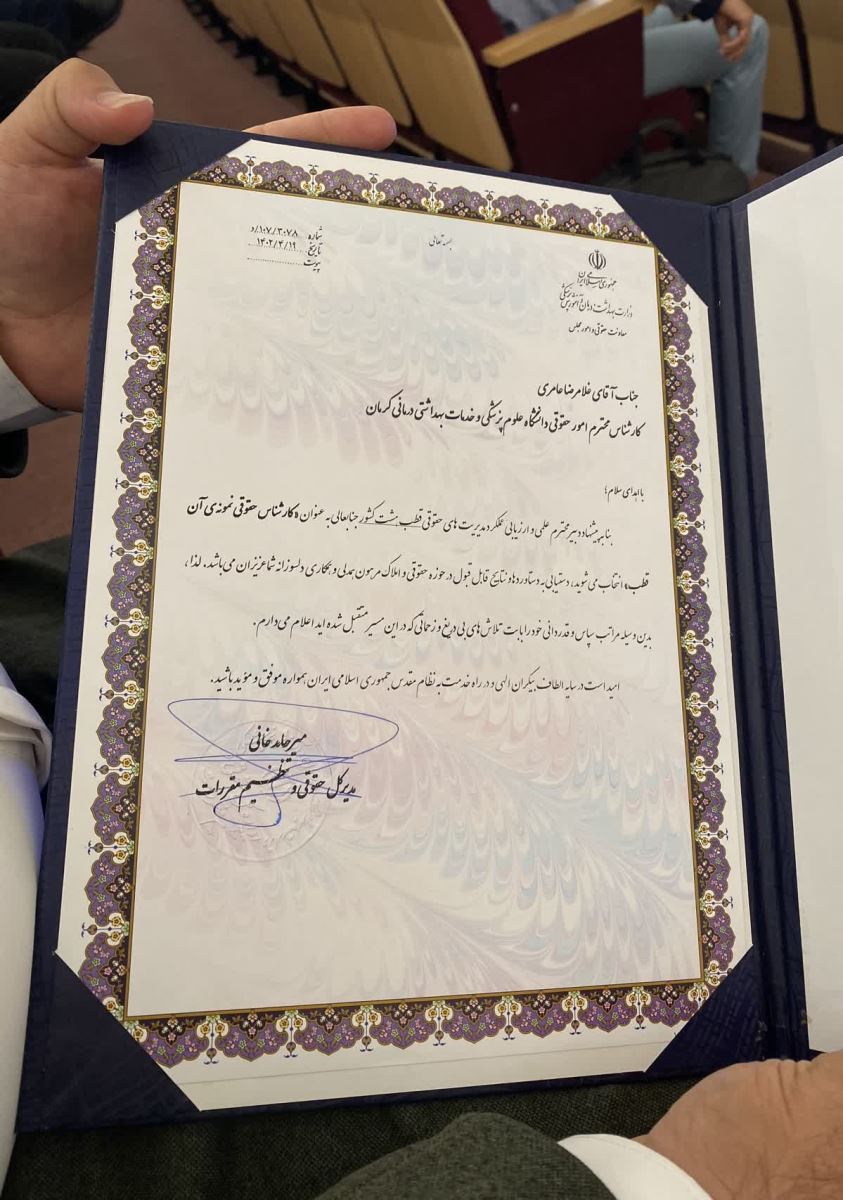 بسمه تعالی
شماره ۱۰۷/۳۰۷۸/د
تاریخ ۱۴۰۲/۴/۱۹
پیوست
جمهوری اسلامی ایران
وزارت بهداشت، درمان و آموزش پزشکی
معاونت حقوقی و امور مجلس
جناب آقای غلامرضا عامری
کارشناس محترم امور حقوقی دانشگاه علوم پزشکی و خدمات بهداشتی درمانی کرمان
با اهدای سلام؛
بنا به پیشنهاد دبیر محترم علمی و ارزیابی عملکرد مدیریت های حقوقی قطب هشت کشور جنابعالی به عنوان «کارشناس حقوقی نمونه‌ی آن
قطب» انتخاب می شوید، دستیابی به دستاوردها و نتایج قابل قبول در حوزه حقوقی و املاک مرهون همدلی و همکاری دلسوزانه شما عزیزان می باشد. لذا،
بدین وسیله مراتب سپاس و قدردانی خود را بابت تلاش های بی دریغ و زحماتی که در این مسیر متقبل شده اید اعلام می دارم.
امید است در سایه الطاف بیکران الهی و در راه خدمت به نظام مقدس جمهوری اسلامی ایران همواره موفق و مؤید باشید.
میرحامد خانی
مدیرکل حقوقی و تنظیم مقررات